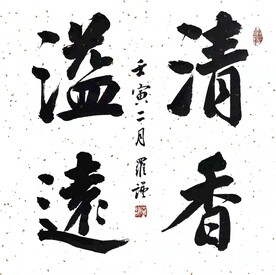 清香
溢遠
壬寅二月羅謹